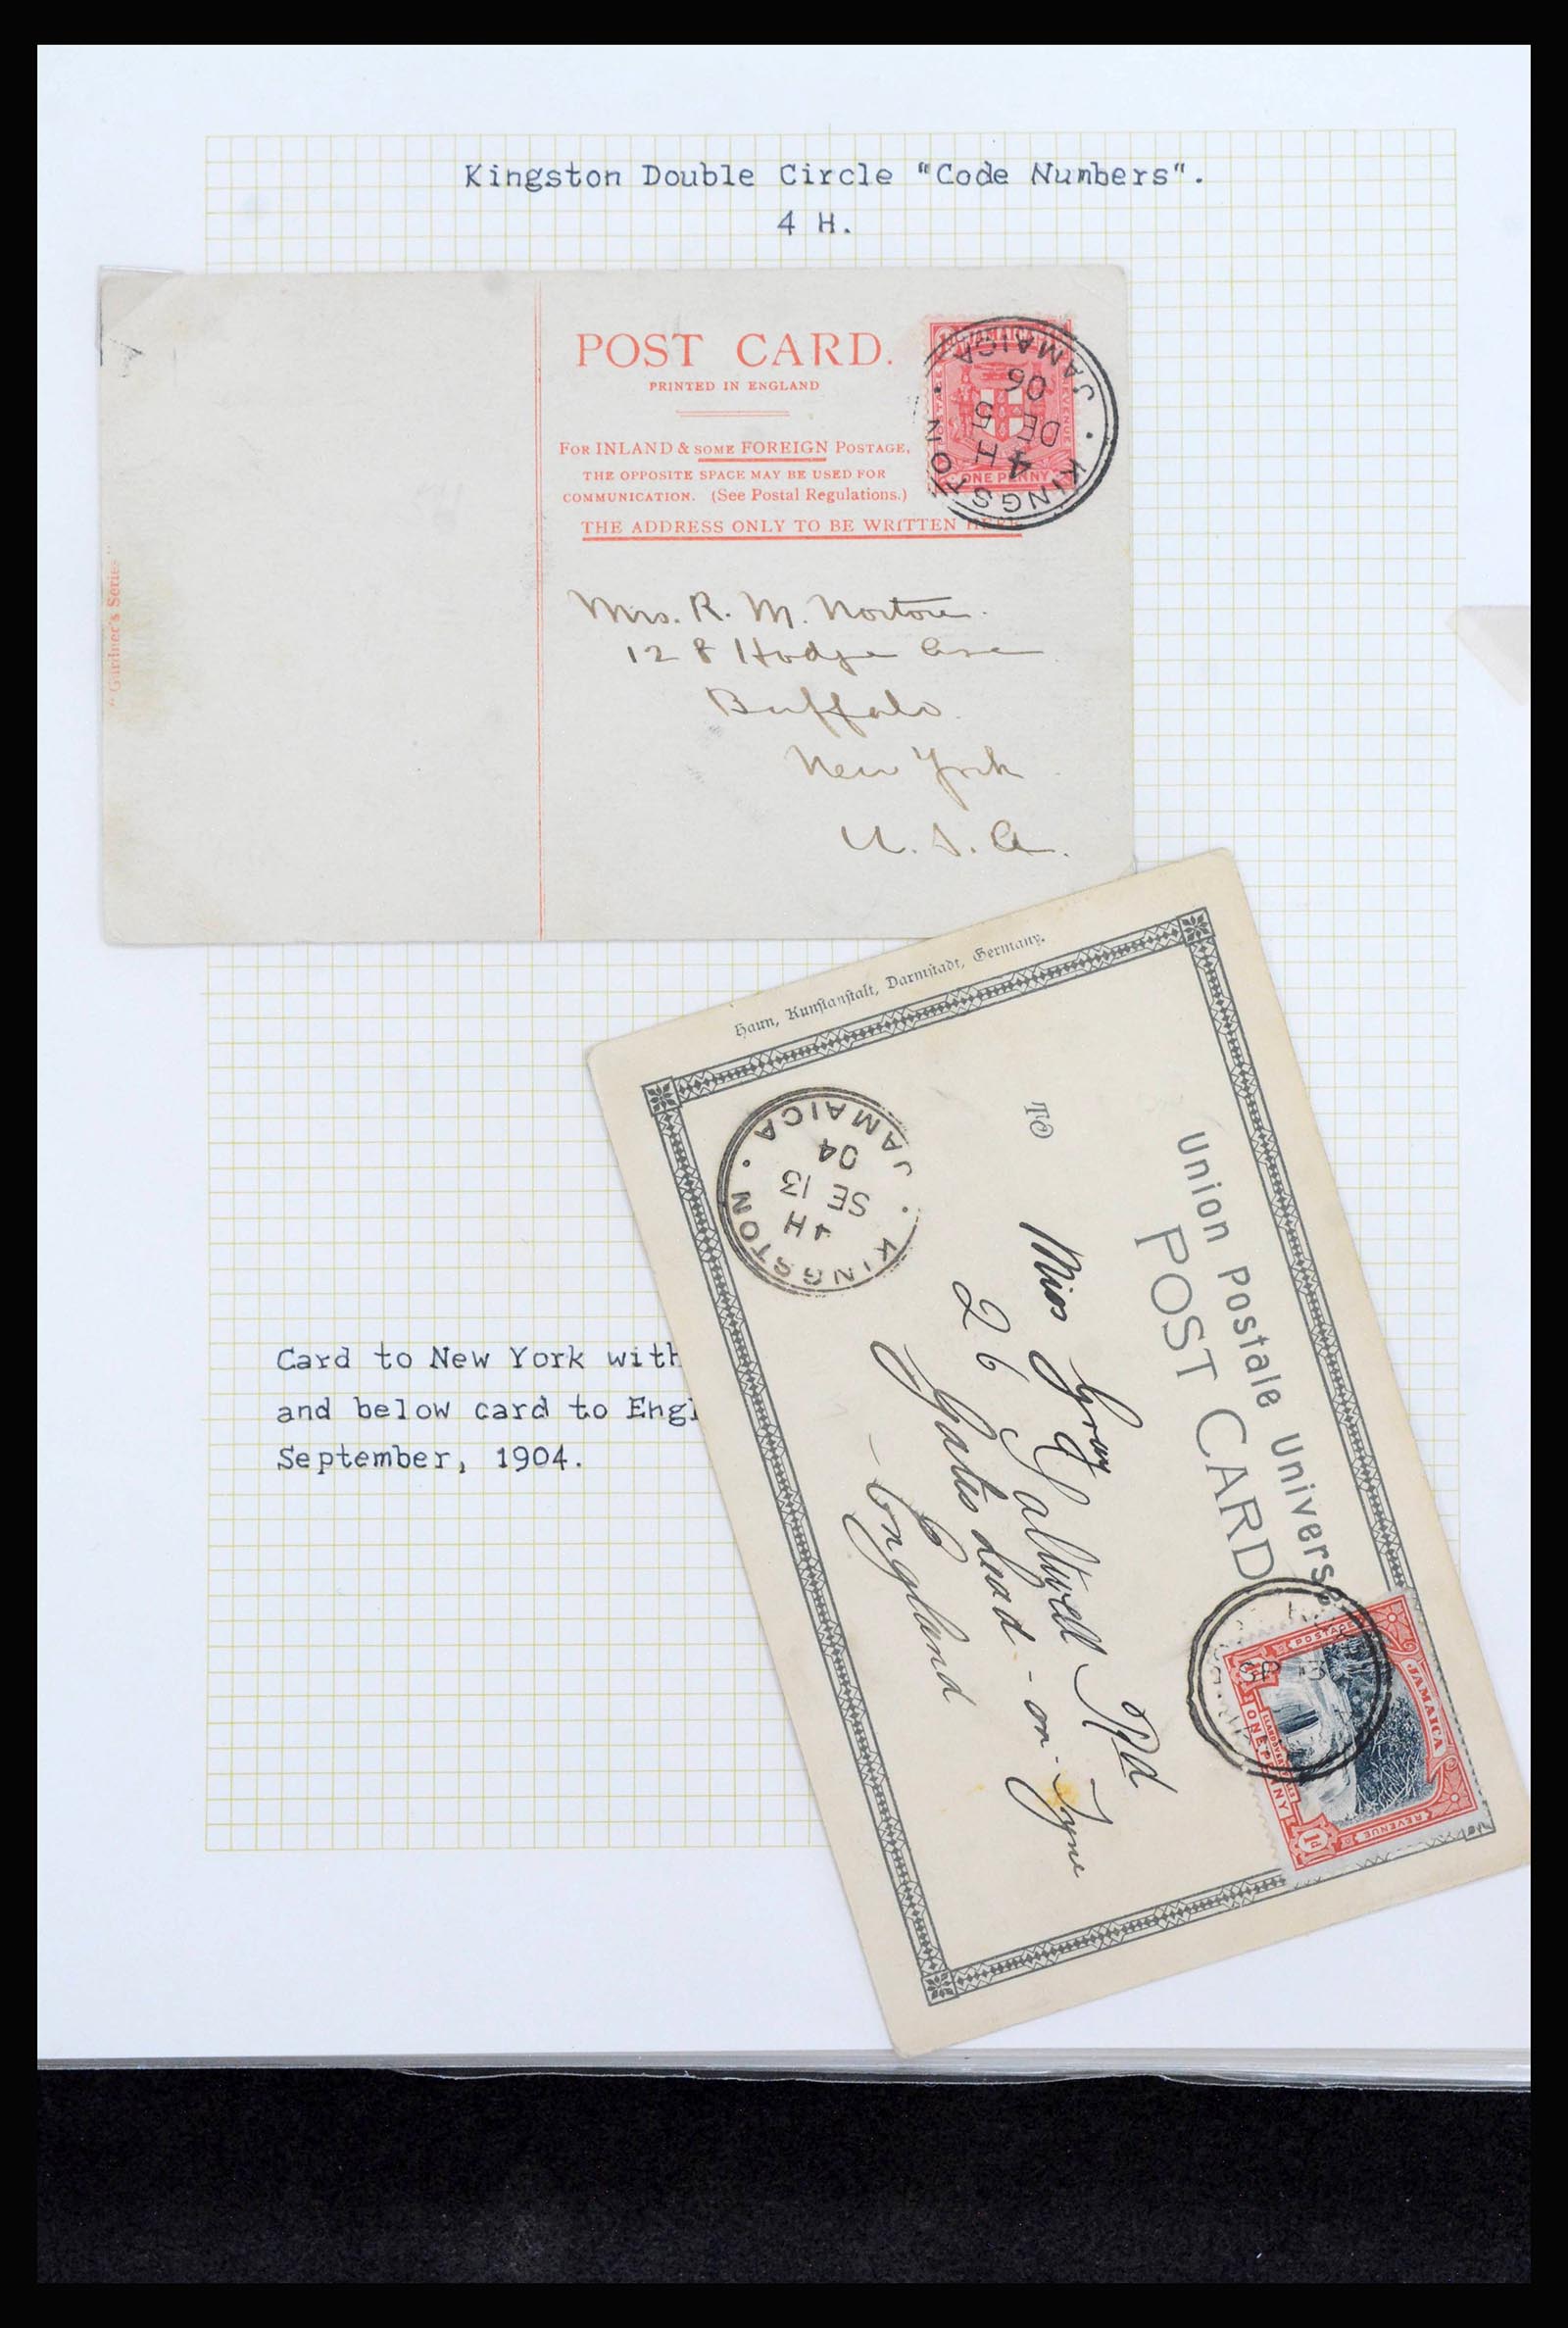 Kingston Double Circle "Code Numbers".
4 H.
POST CARD.
PRINTED IN ENGLAND
FOR INLAND & SOME FOREIGN POSTAGE,
THE OPPOSITE SPACE MAY BE USED FOR
COMMUNICATION. (See Postal Regulations.)
THE ADDRESS ONLY TO BE WRITTEN HERE
JAMAICA
ONE PENNY
REVENUE
KINGSTON · JAMAICA ·
4 H
DE 5
06
"Gardner's Series"
Mrs. R. M. Norton.
128 Hodge Ave
Buffalo.
New York
U. S. A.
Haun, Kunstanstalt, Darmstadt, Germany.
Union Postale Univers
POST CARD
TO
Miss Gray
26 Saltwell Rd
Gateshead-on-Tyne
- England
KINGSTON · JAMAICA ·
4 H
SE 13
04
JAMAICA
POSTAGE
REVENUE
ONE PENNY
Card to New York with
and below card to Engl
September, 1904.